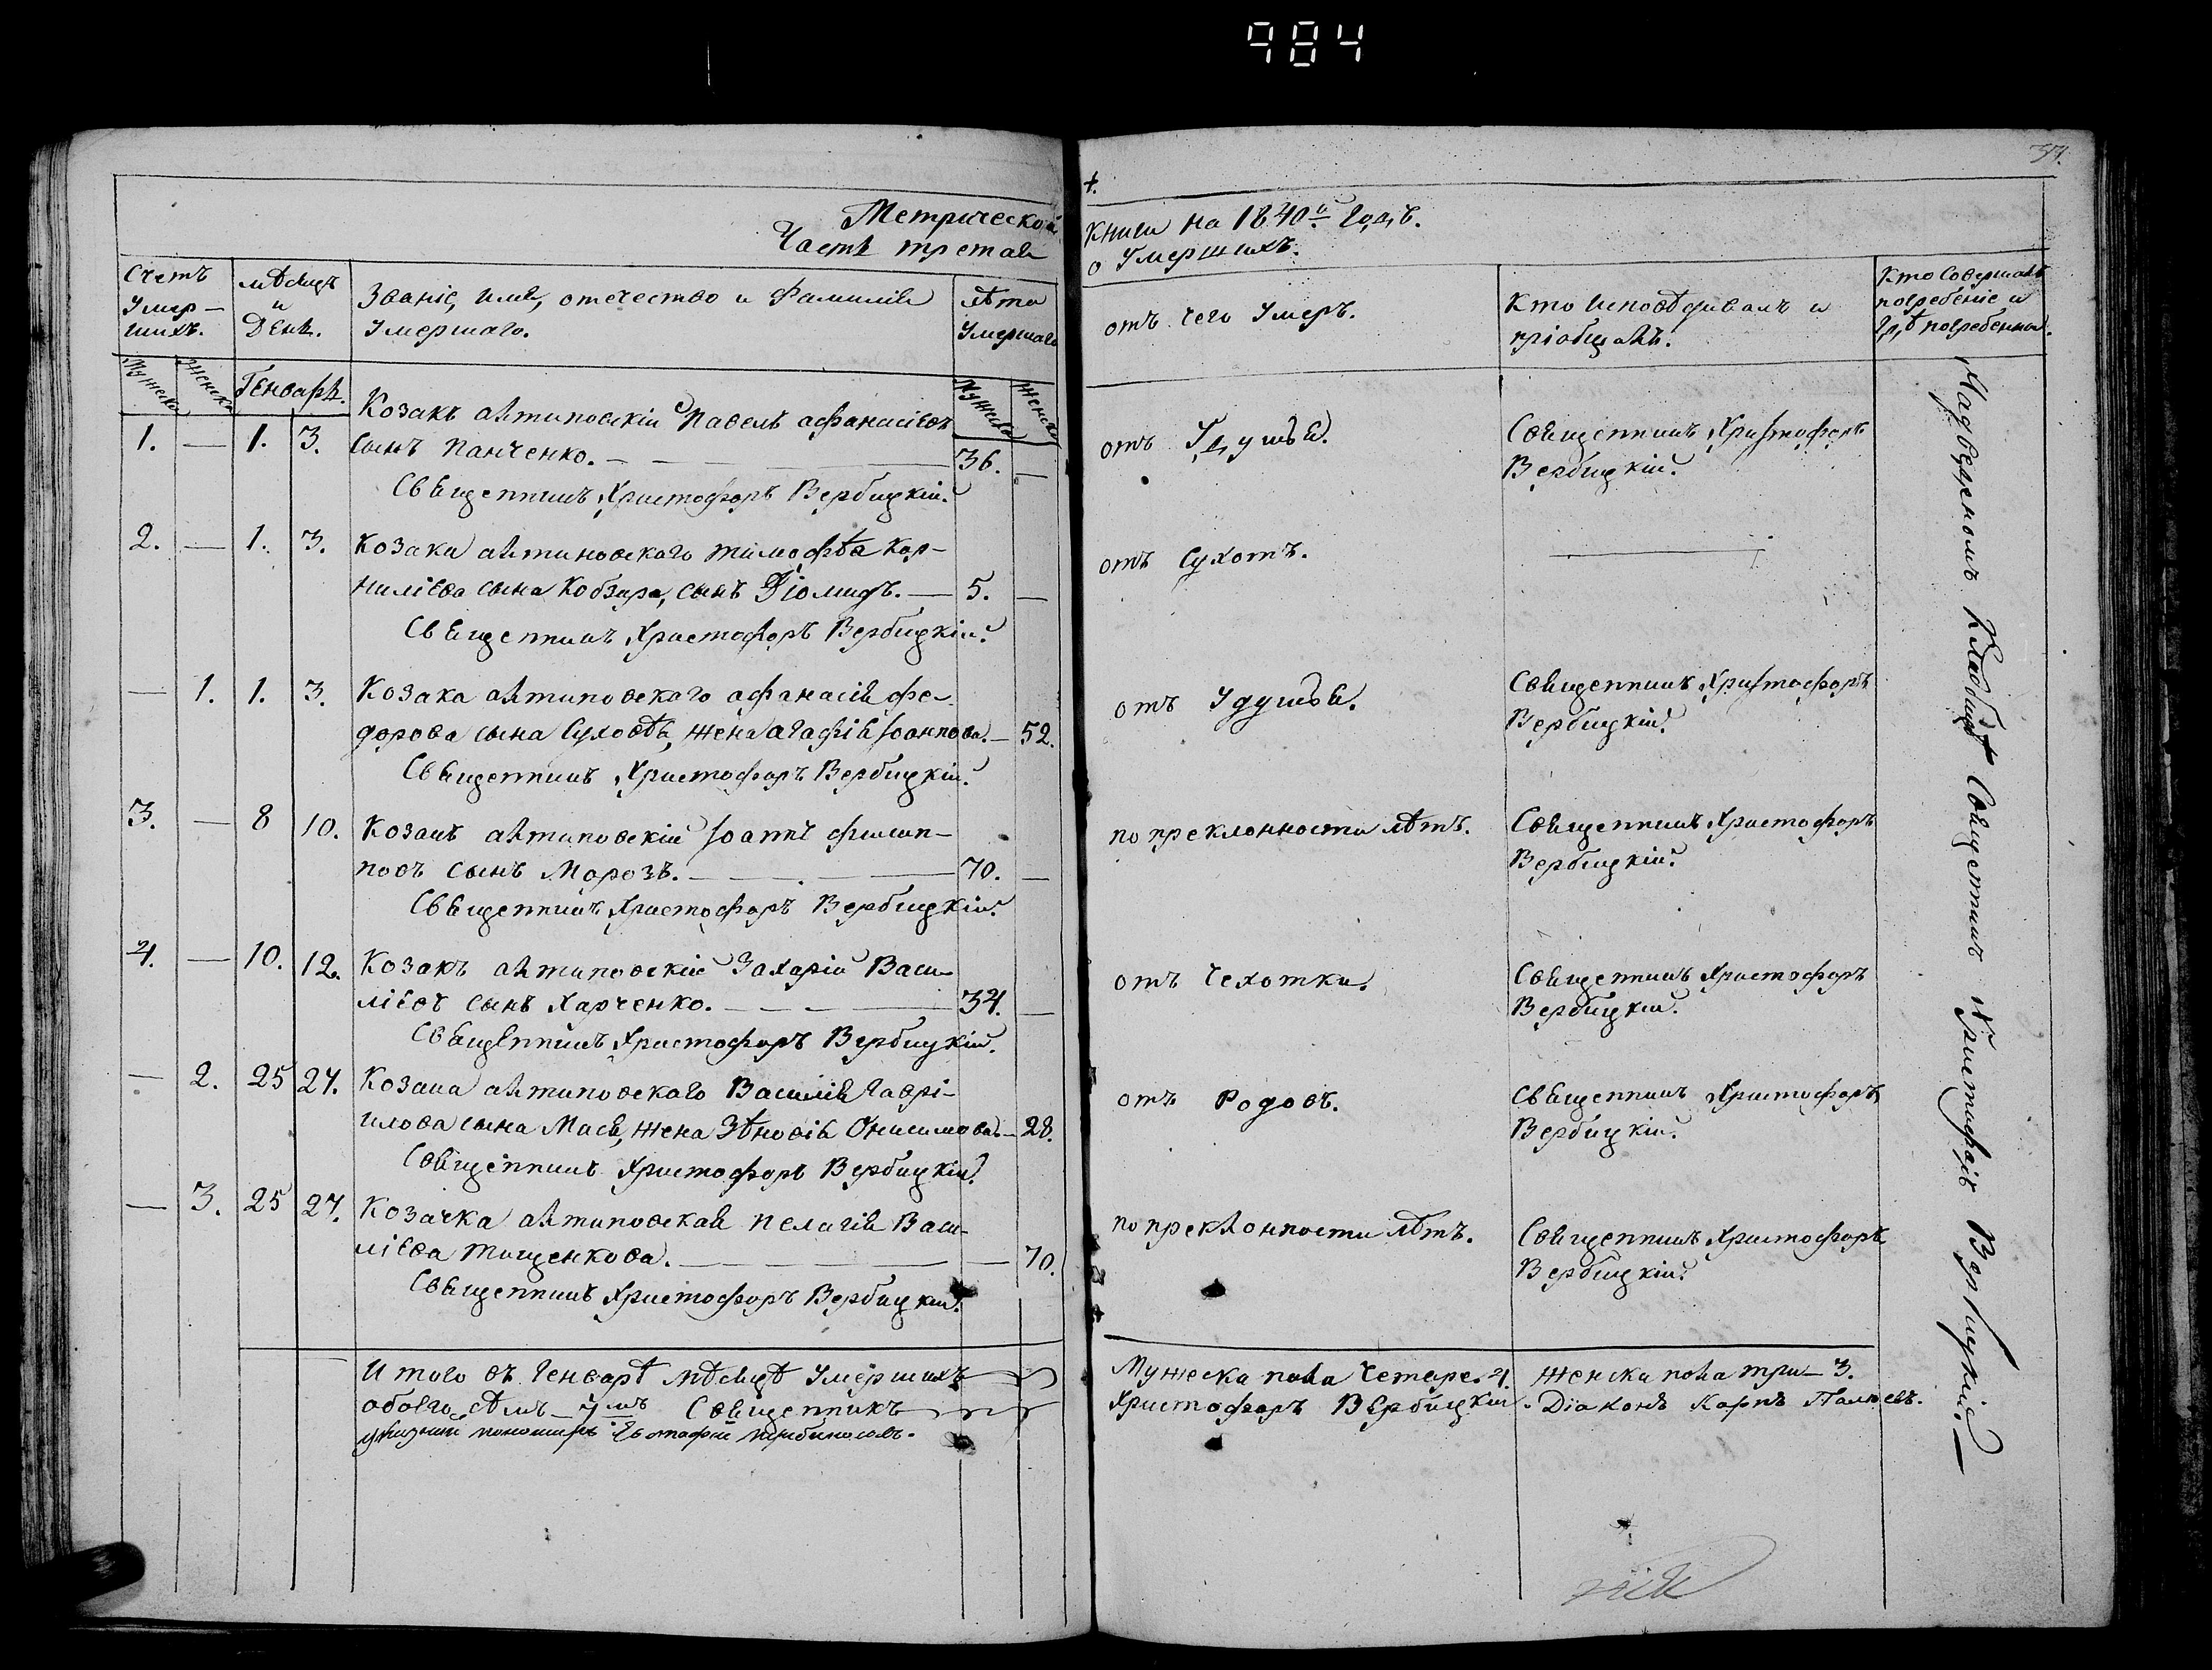 984
37.
Метрической
Часть третая
книги на 1840й годъ.
о Умершихъ.
Счетъ Умер-шихъ.
мѣсяцъ и День.
Званіе, имя, отечество и фамилія Умершаго.
лѣта Умершаго
отъ чего Умеръ.
Кто исповѣдивалъ и пріобщалъ.
Кто совершалъ погребеніе и гдѣ погребенны.
Мужеска
Женска
Генварь.
Мужеска
Женска
1. — 1. 3. Козакъ алтиповскій Павелъ афанасіевъ
сынъ Панченко. — 36. —
Священникъ Христофоръ Вербицкій.
отъ Удушья.
Священникъ Христофоръ
Вербицкій.
2. — 1. 3. Козака алтиповского тимофѣа Кор-
ниліева сына Кобзаря, сынъ Діомидъ. — 5. —
Священникъ Христофоръ Вербицкій.
отъ Сухотъ.
— 1. 1. 3. Козака алтиповского афанасія фе-
дорова сына Суховѣя, жена агафія Іоаннова. — 52.
Священникъ Христофоръ Вербицкій.
отъ Удушья.
Священникъ Христофоръ
Вербицкій.
3. — 8 10. Козакъ алтиповскій Іоаннъ филип-
повъ сынъ Морозъ. — 70. —
Священникъ Христофоръ Вербицкій.
по преклонности лѣтъ.
Священникъ Христофоръ
Вербицкій.
4. — 10. 12. Козакъ алтиповскій Захарій Васи-
ліевъ сынъ Харченко. — 34. —
Священникъ Христофоръ Вербицкій.
отъ Чехотки.
Священникъ Христофоръ
Вербицкій.
— 2. 25 27. Козака алтиповского Василія Гаврі-
илова сына Мася, жена Зѣновія Онисимова. — 28.
Священникъ Христофоръ Вербицкій.
отъ Родовъ.
Священникъ Христофоръ
Вербицкій.
— 3. 25 27. Козачка алтиповская Пелагія Васи-
ліева Тищенкова. — 70.
Священникъ Христофоръ Вербицкій.
по преклонности лѣтъ.
Священникъ Христофоръ
Вербицкій.
На Кладбищѣ Священникъ Христофоръ Вербицкій. —
Итого въ Генварѣ мѣсяцѣ Умершихъ
Мужеска пола Четыре. 4. Женска пола три — 3.
обоего — 7мъ Священникъ
Христофоръ Вербицкій. Діаконъ Карпъ
пономарь